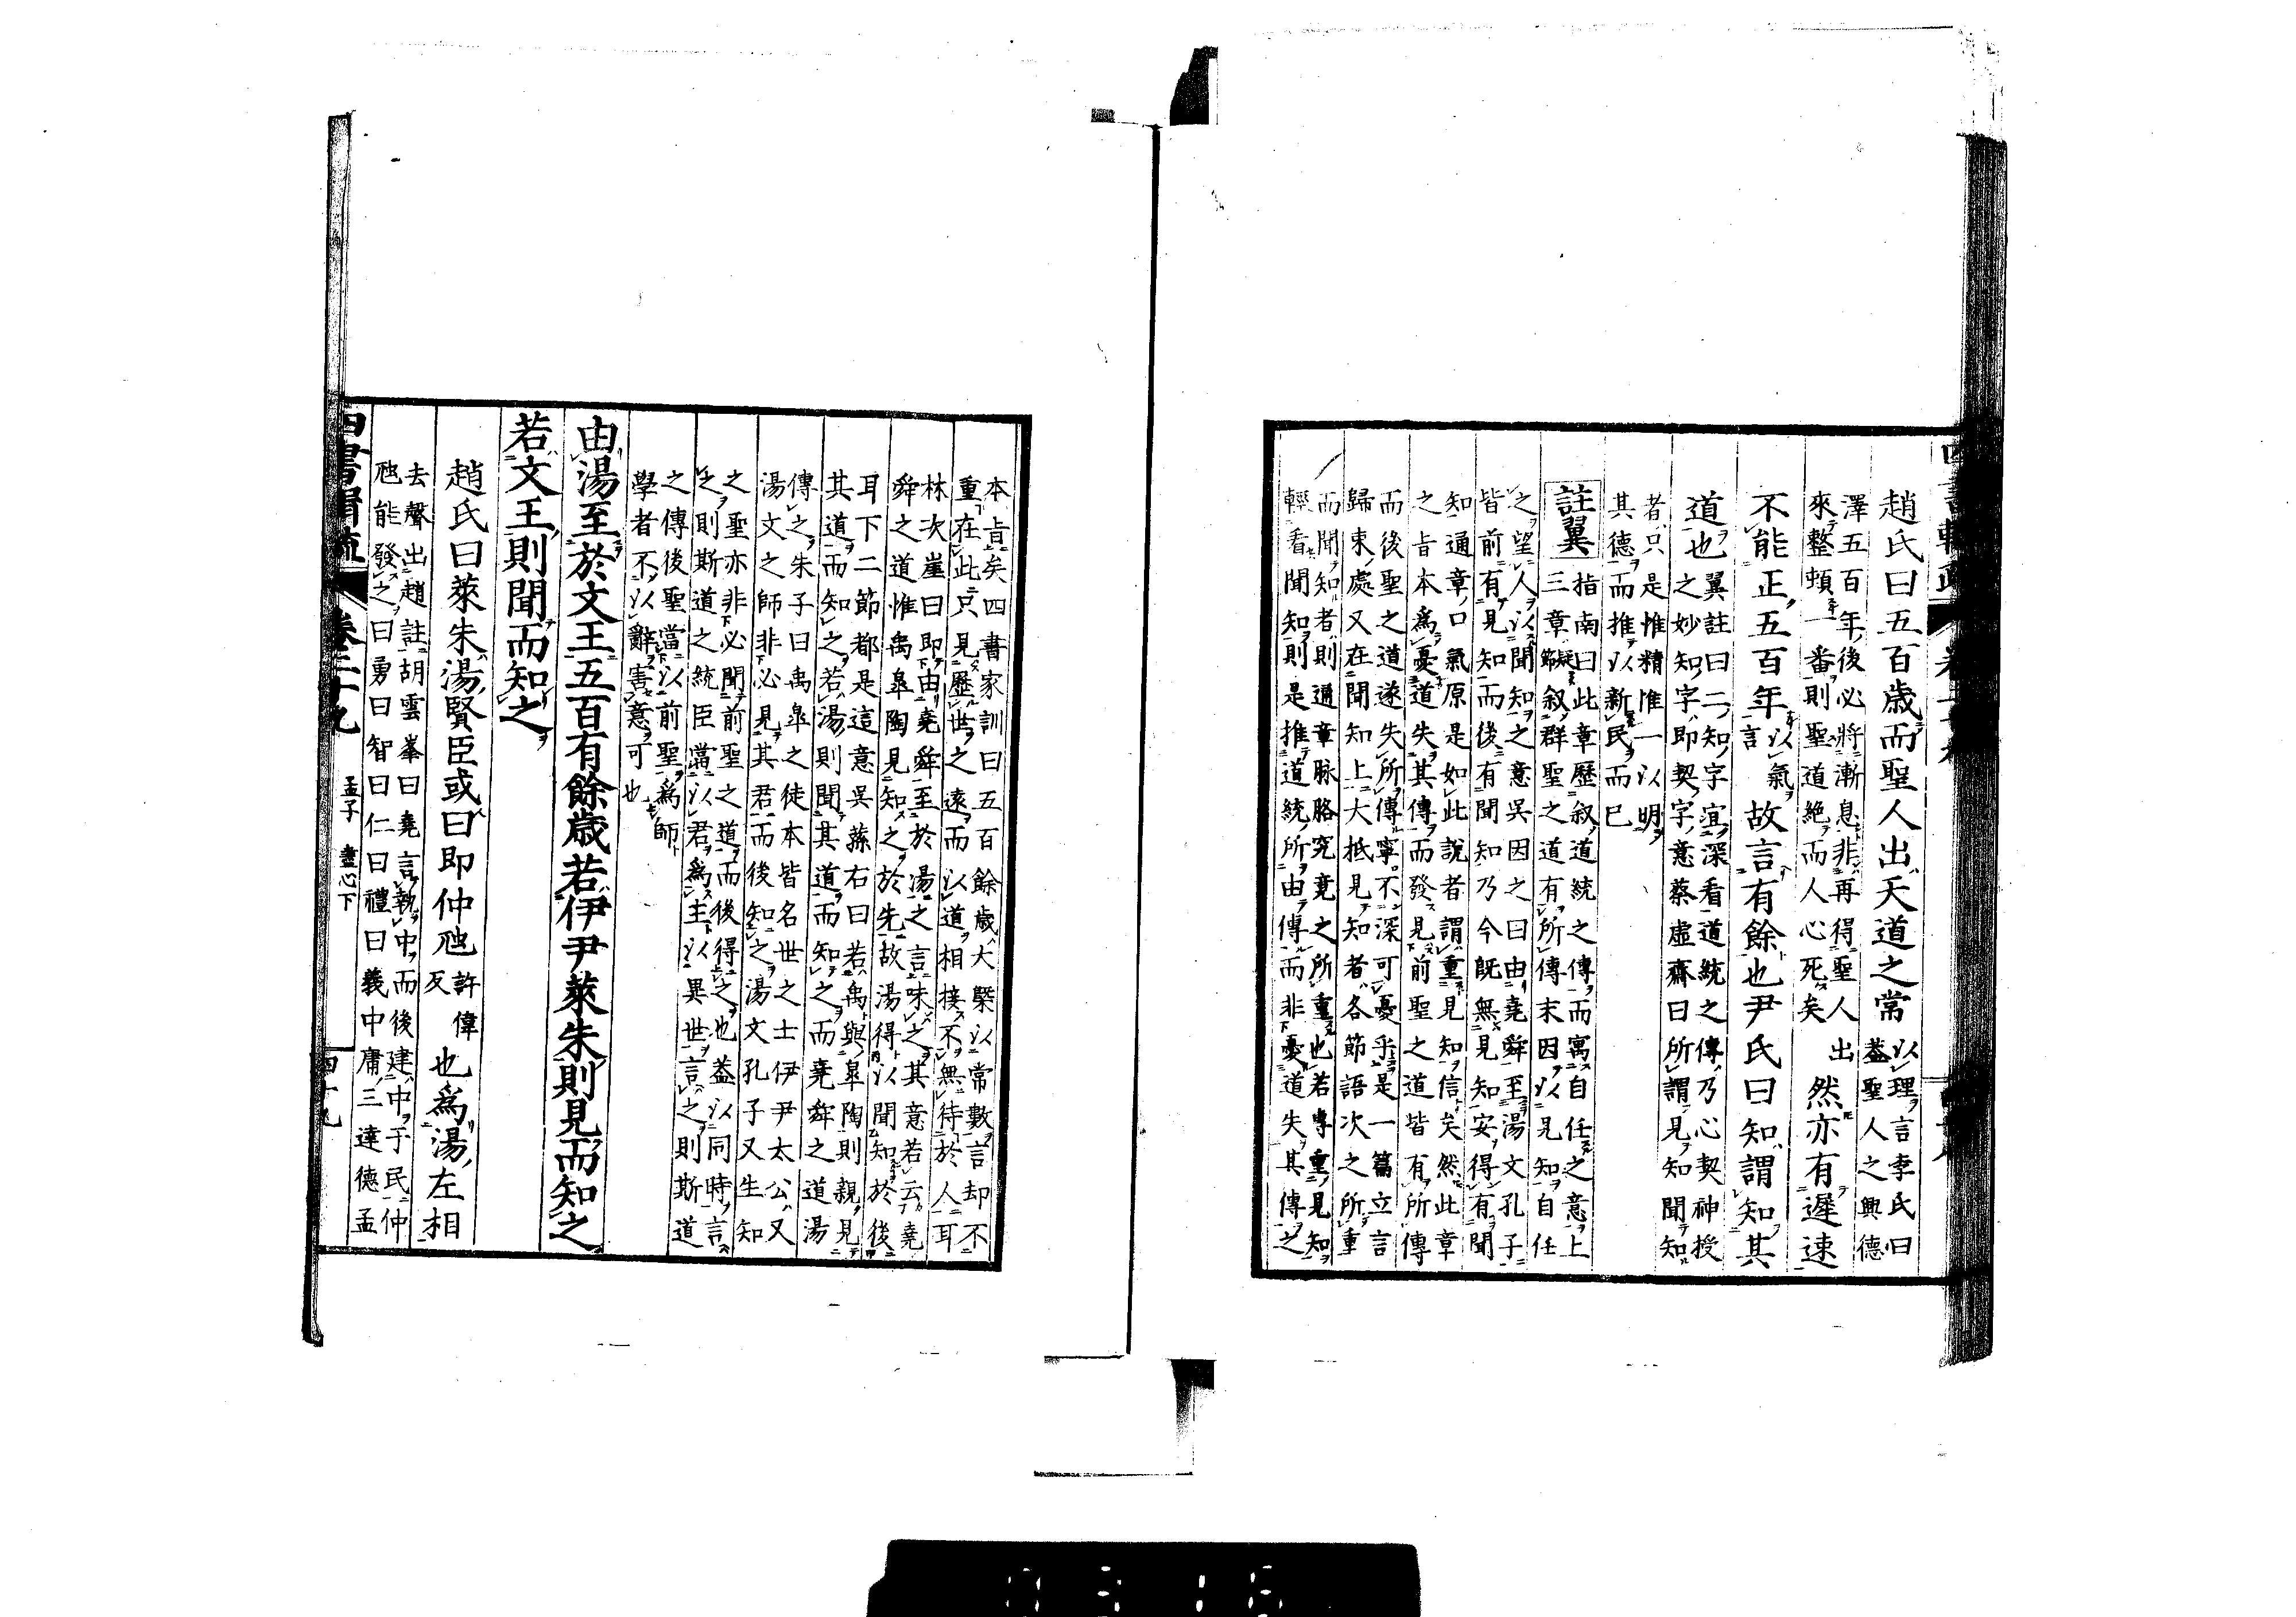 趙氏曰五百歳而聖人出天道之常以理言李氏曰
蓋聖人之興德
澤五百年後必將漸息非再得聖人出
來整頓一番則聖道絶而人心死矣然亦有遲速
不能正五百年以氣言故言有餘也尹氏曰知謂知其
道也翼註曰二知字宜深看道統之傳乃心契神授
之妙知字即契字意蔡虚齋曰所謂見知聞知
者只是惟精惟一以明
其德而推以新民而已
註翼指南曰此章歴叙道統之傳而寓自任之意上
三章叙群聖之道有所傳末因以見知自任
之望人以聞知之意吳因之曰由堯舜至湯文孔子
皆前有見知而後有聞知乃今既無見知安得有聞
知通章口氣原是如此説者謂重見知信矣然此章
之旨本為憂道失其傳而發見前聖之道皆有所傳
而後聖之道遂失所傳寧不深可憂乎是一篇立言
歸束處又在聞知上大抵見知者各節語次之所重
而聞知者則通章脉胳究竟之所重也若専重見知
輕看聞知則是推道統所由傳而非憂道失其傳之
本旨矣四書家訓曰五百餘歳大槩以常數言却不
重在此只見歴世之遠而以道相接不無待於人耳
林次崖曰即由堯舜至於湯之言味之其意若云堯
舜之道惟禹皐陶見知之於先故湯得以聞知於後
耳下二節都是這意吳蓀右曰若禹與皐陶則親見
其道而知之若湯則聞其道而知之而堯舜之道湯
傳之朱子曰禹皐之徒本皆名世之士伊尹太公又
湯文之師非必見其君而後知之湯文孔子又生知
之聖亦非必聞前聖之道而後得之也蓋以同時言
之則斯道之統臣當以君為主以異世言之則斯道
之傳後聖當以前聖為師
學者不以辭害意可也
由湯至於文王五百有餘歳若伊尹萊朱則見而知之
若文王則聞而知之
趙氏曰萊朱湯賢臣或曰即仲虺許偉反也為湯左相
去聲出趙註胡雲峯曰堯言執中而後建中于民仲
虺能發之曰勇曰智曰仁曰禮曰義中庸三達德孟
孟子 盡心下
四十九